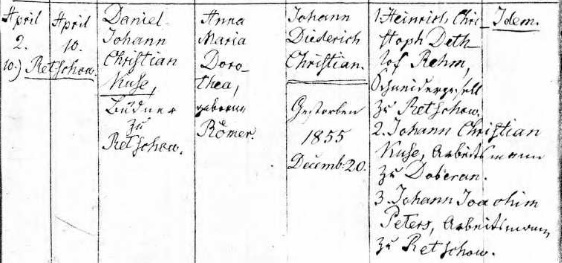 April
2.
10.) Retschow.
April
10.
Daniel
Johann
Christian
Kuse,
Büdner
zu
Retschow.
Anna
Maria
Doro-
thea,
geborne
Römer.
Johann
Diederich
Christian.
Gestorben
1855
Decemb. 20.
1. Heinrich Chri-
stoph Deth-
lof Rehm,
Schneidergesell
zu Retschow.
2. Johann Christian
Kuse, Arbeitsmann
zu Doberan.
3. Johann Joachim
Peters, Arbeitsmann
zu Retschow.
Idem.